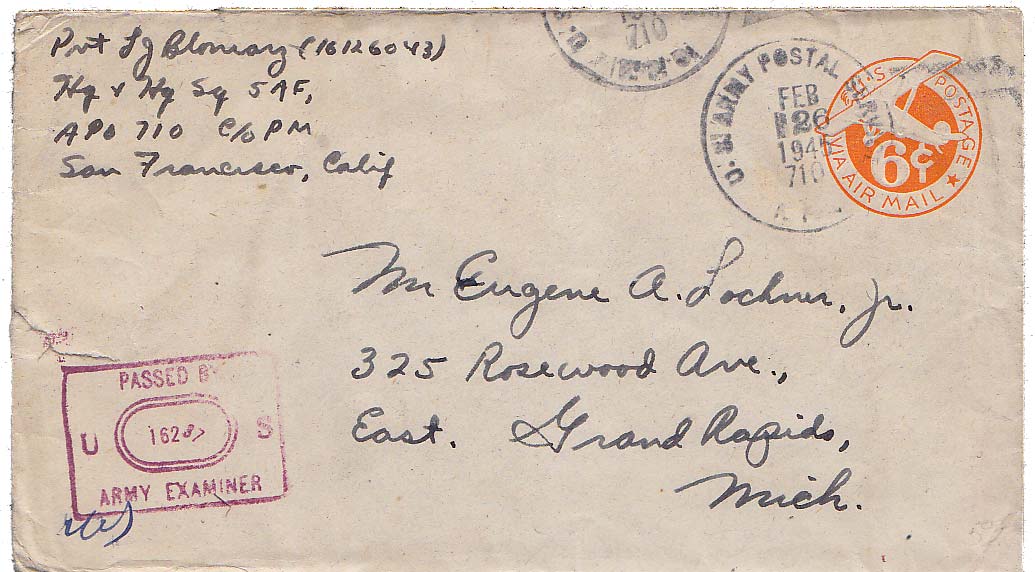 Pvt L J Blomary (16126043)
Hq & Hq Sq 5 AF,
APO 710 C/o PM
San Francisco, Calif
710
U.S. ARMY POSTAL
FEB
26
1945
710
U.S. POSTAGE
6¢
VIA AIR MAIL
Mr Eugene A. Lochner, Jr.
325 Rosewood Ave.,
East. Grand Rapids,
Mich.
PASSED BY
U 1628 S
ARMY EXAMINER